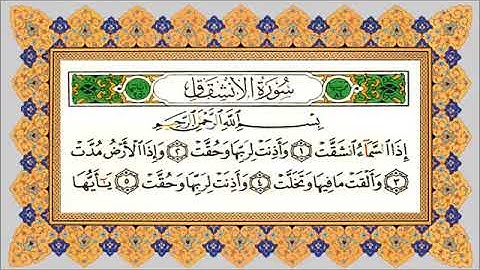 سُورَةُ الْاِنْشِقَاقِ
بِسْمِ اللَّهِ الرَّحْمَٰنِ الرَّحِيمِ
إِذَا السَّمَاءُ انشَقَّتْ ١ وَأَذِنَتْ لِرَبِّهَا وَحُقَّتْ ٢ وَإِذَا الْأَرْضُ مُدَّتْ
٣ وَأَلْقَتْ مَا فِيهَا وَتَخَلَّتْ ٤ وَأَذِنَتْ لِرَبِّهَا وَحُقَّتْ ٥ يَا أَيُّهَا